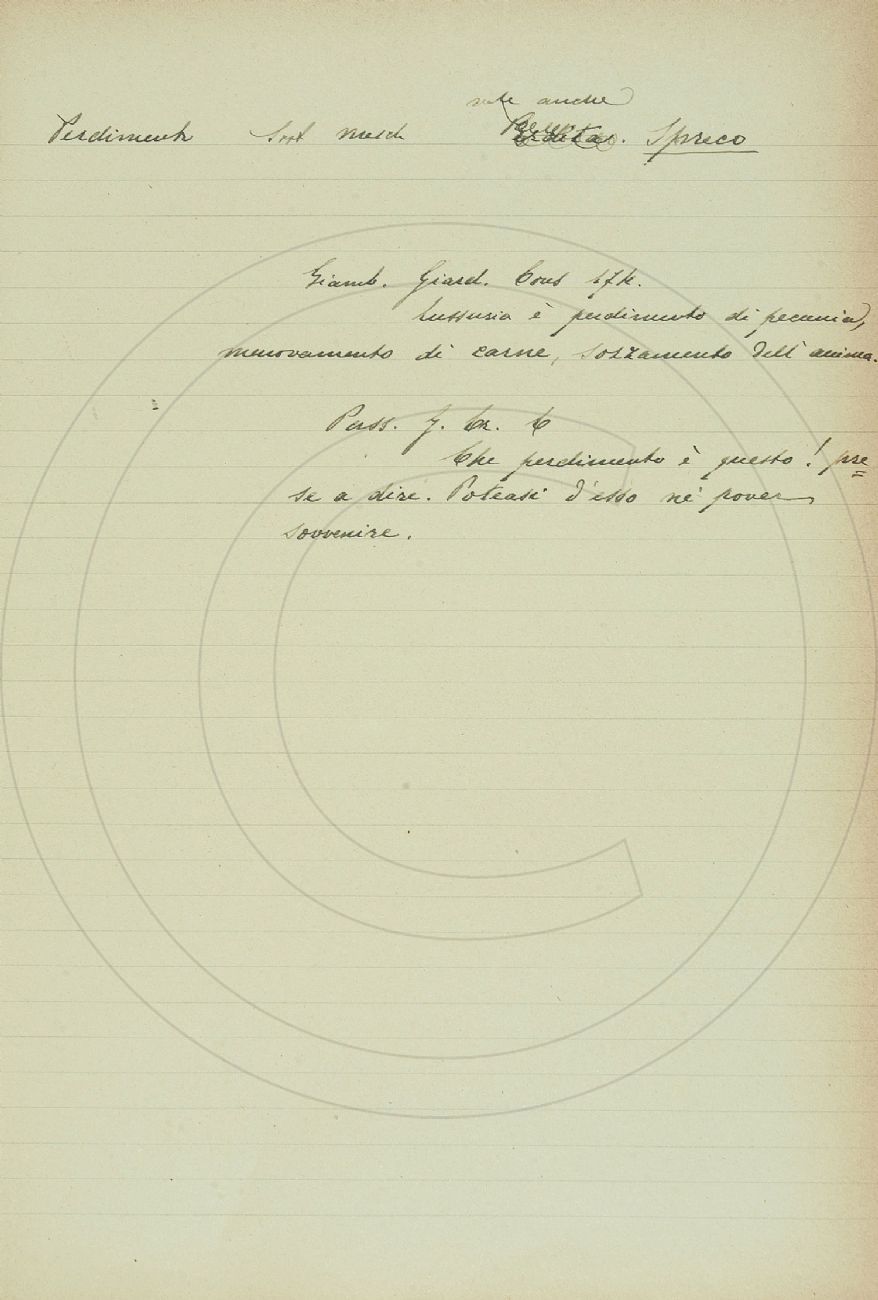 vale anche
Perdimento Sost masch Spreco
Giamb. Giard. Cons 174.
Lussuria è perdimento di pecunia,
menovamento di carne, sozzamento dell'anima.
Pass. G. Cr. C
Che perdimento è questo! pre
se a dire. Poteasi d'esso né poveri
sovvenire.